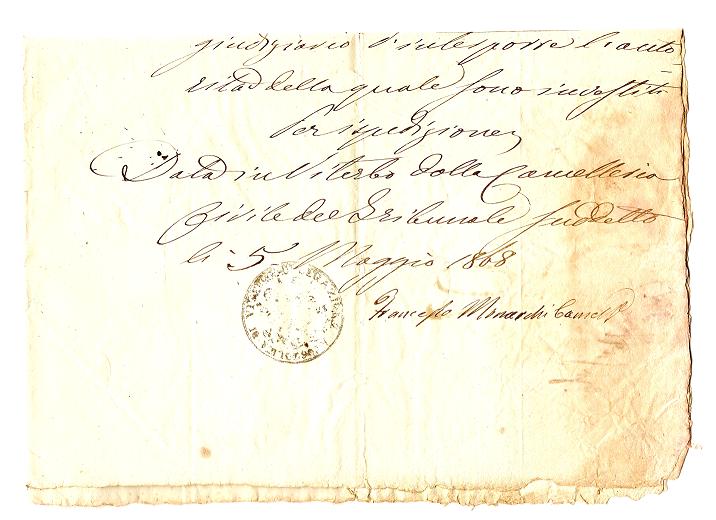 giudiziario d'interporre l'auto
rità della quale sono investiti
Per ispedizione
Data in Viterbo dalla Cancelleria
Civile del Tribunale suddetto
li 5 Maggio 1868
Francesco Monarchi Cancell